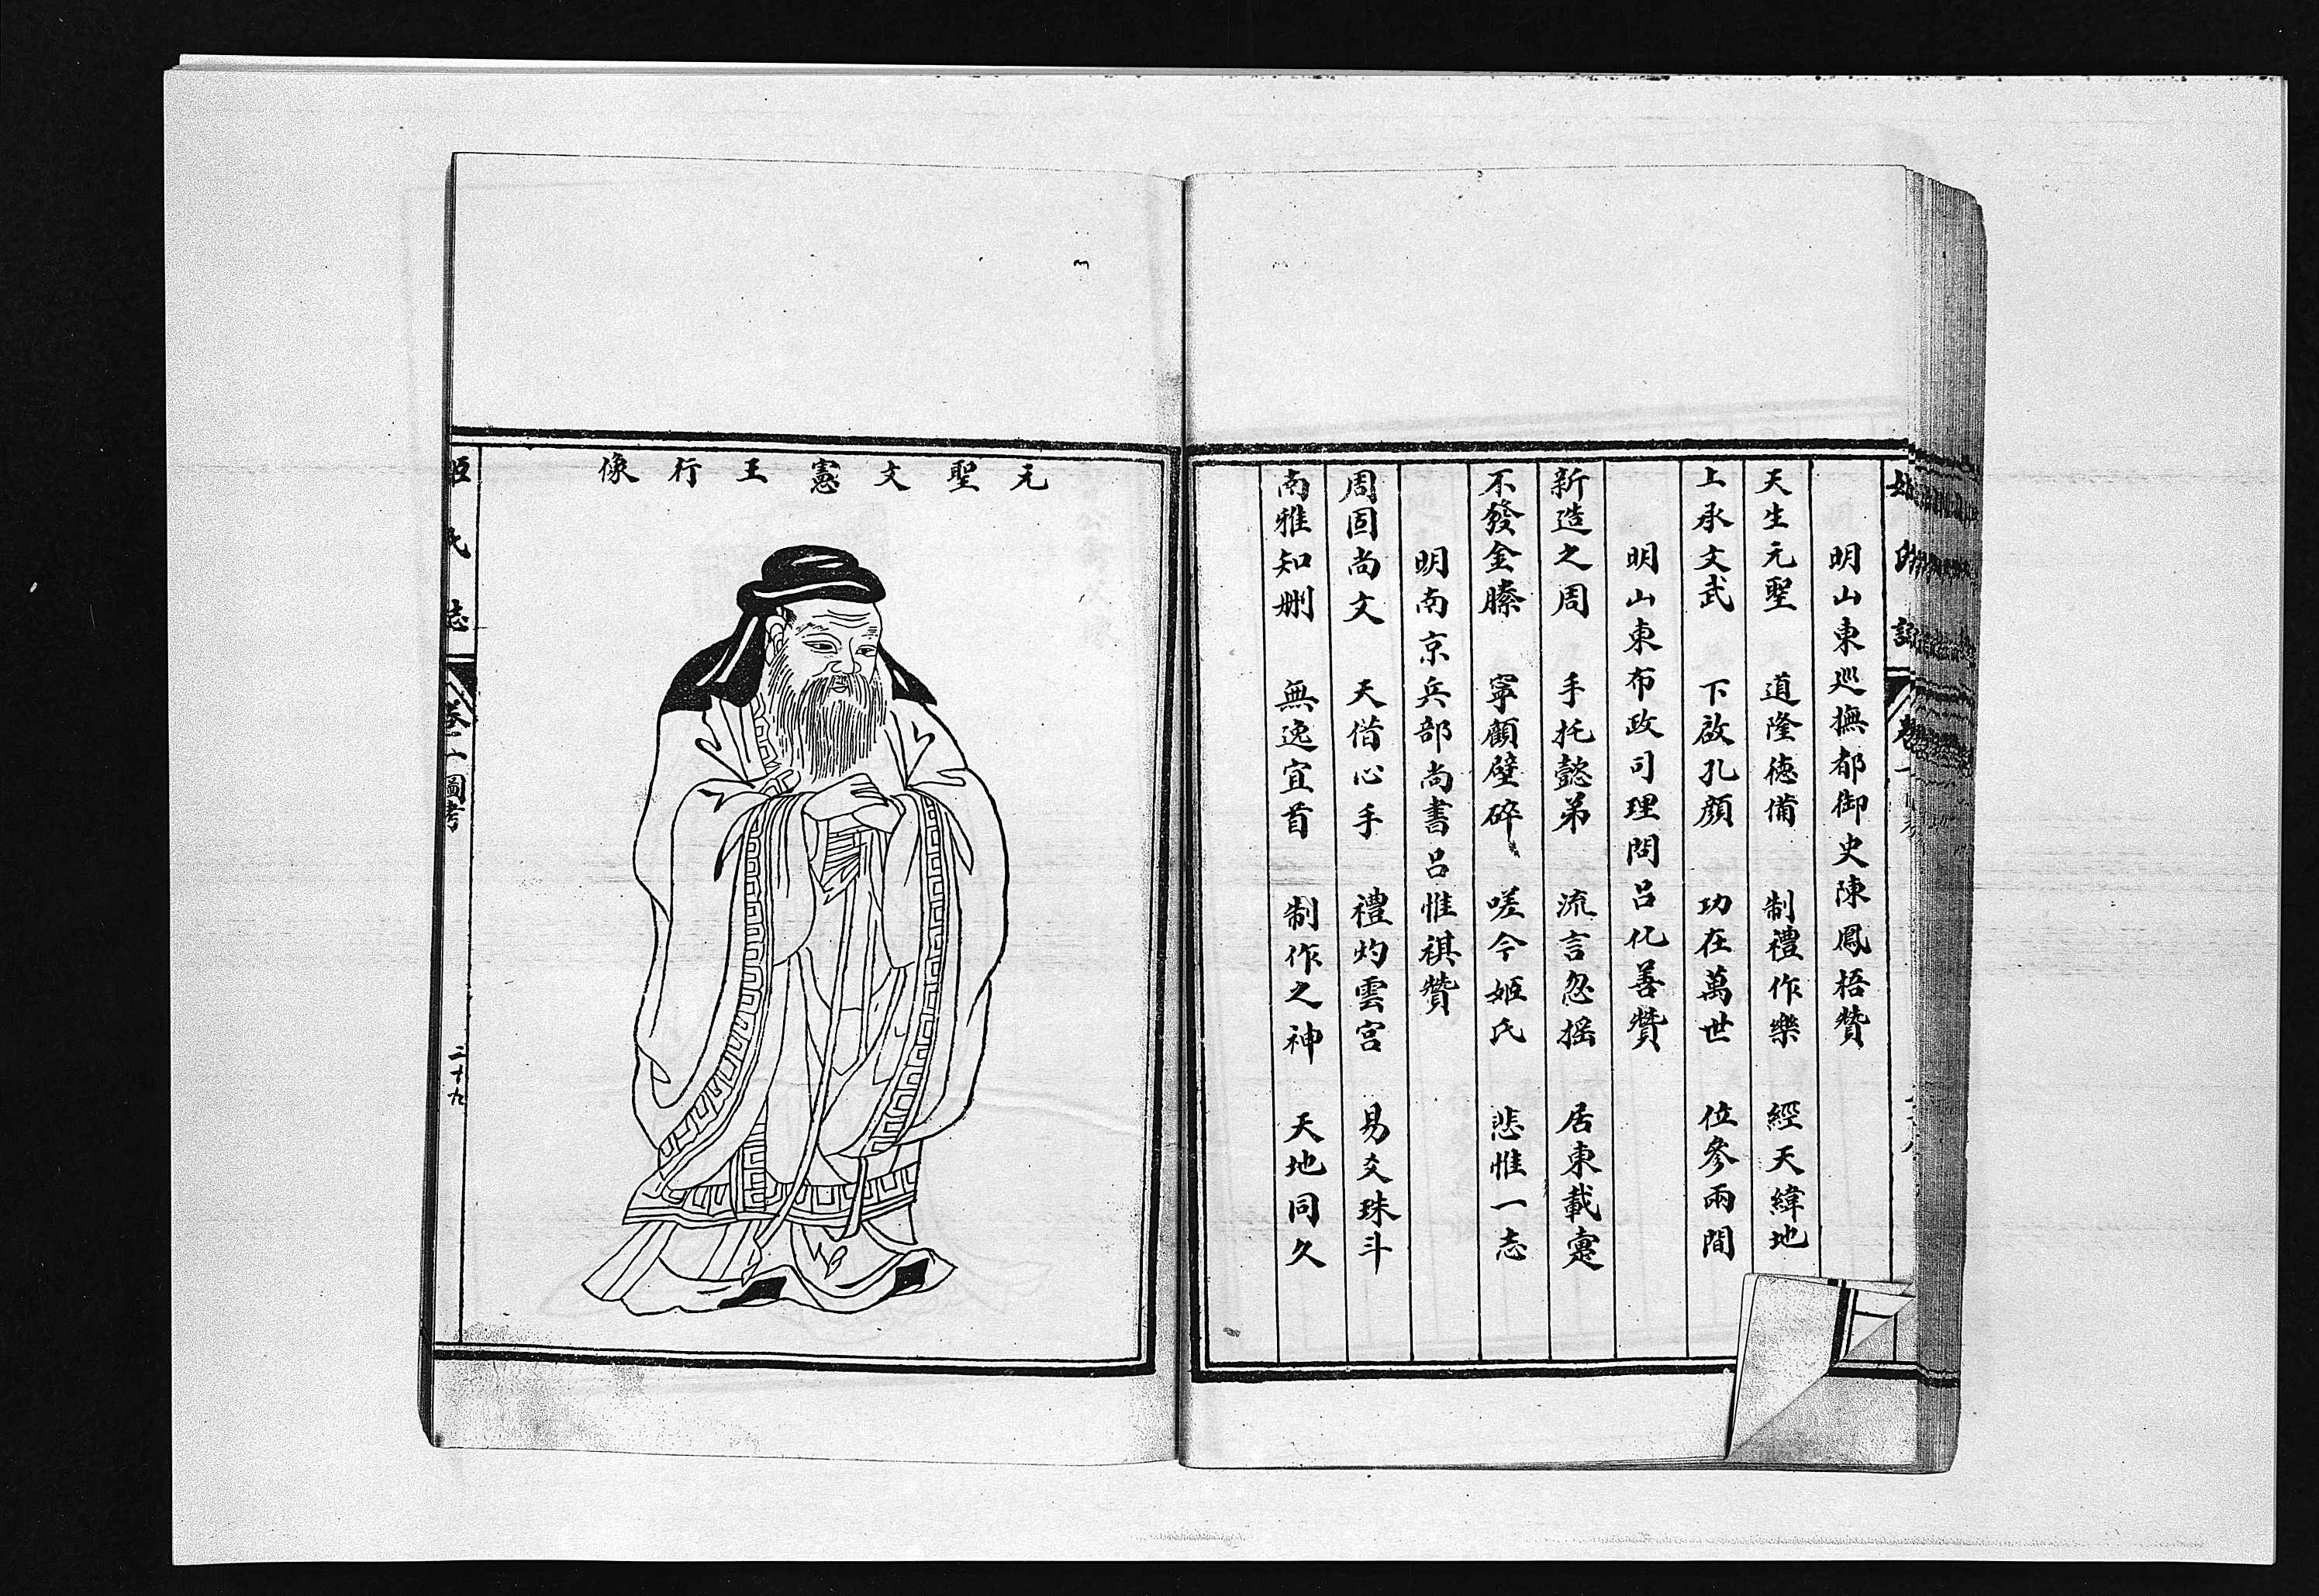 明山東巡撫都御史陳鳳梧贊
天生元聖 道隆德備 制禮作樂 經天緯地
上承文武 下啟孔顏 功在萬世 位參兩間
明山東布政司理問呂化善贊
新造之周 手托懿弟 流言忽搖 居東載疐
不發金縢 寧顧璧碎 嗟今姬氏 悲惟一志
明南京兵部尚書呂惟祺贊
周固尚文 天借心手 禮灼雲宮 易爻珠斗
南雅知刪 無逸宜首 制作之神 天地同久
元聖文憲王行像
姬氏志 卷一 圖考 二十九